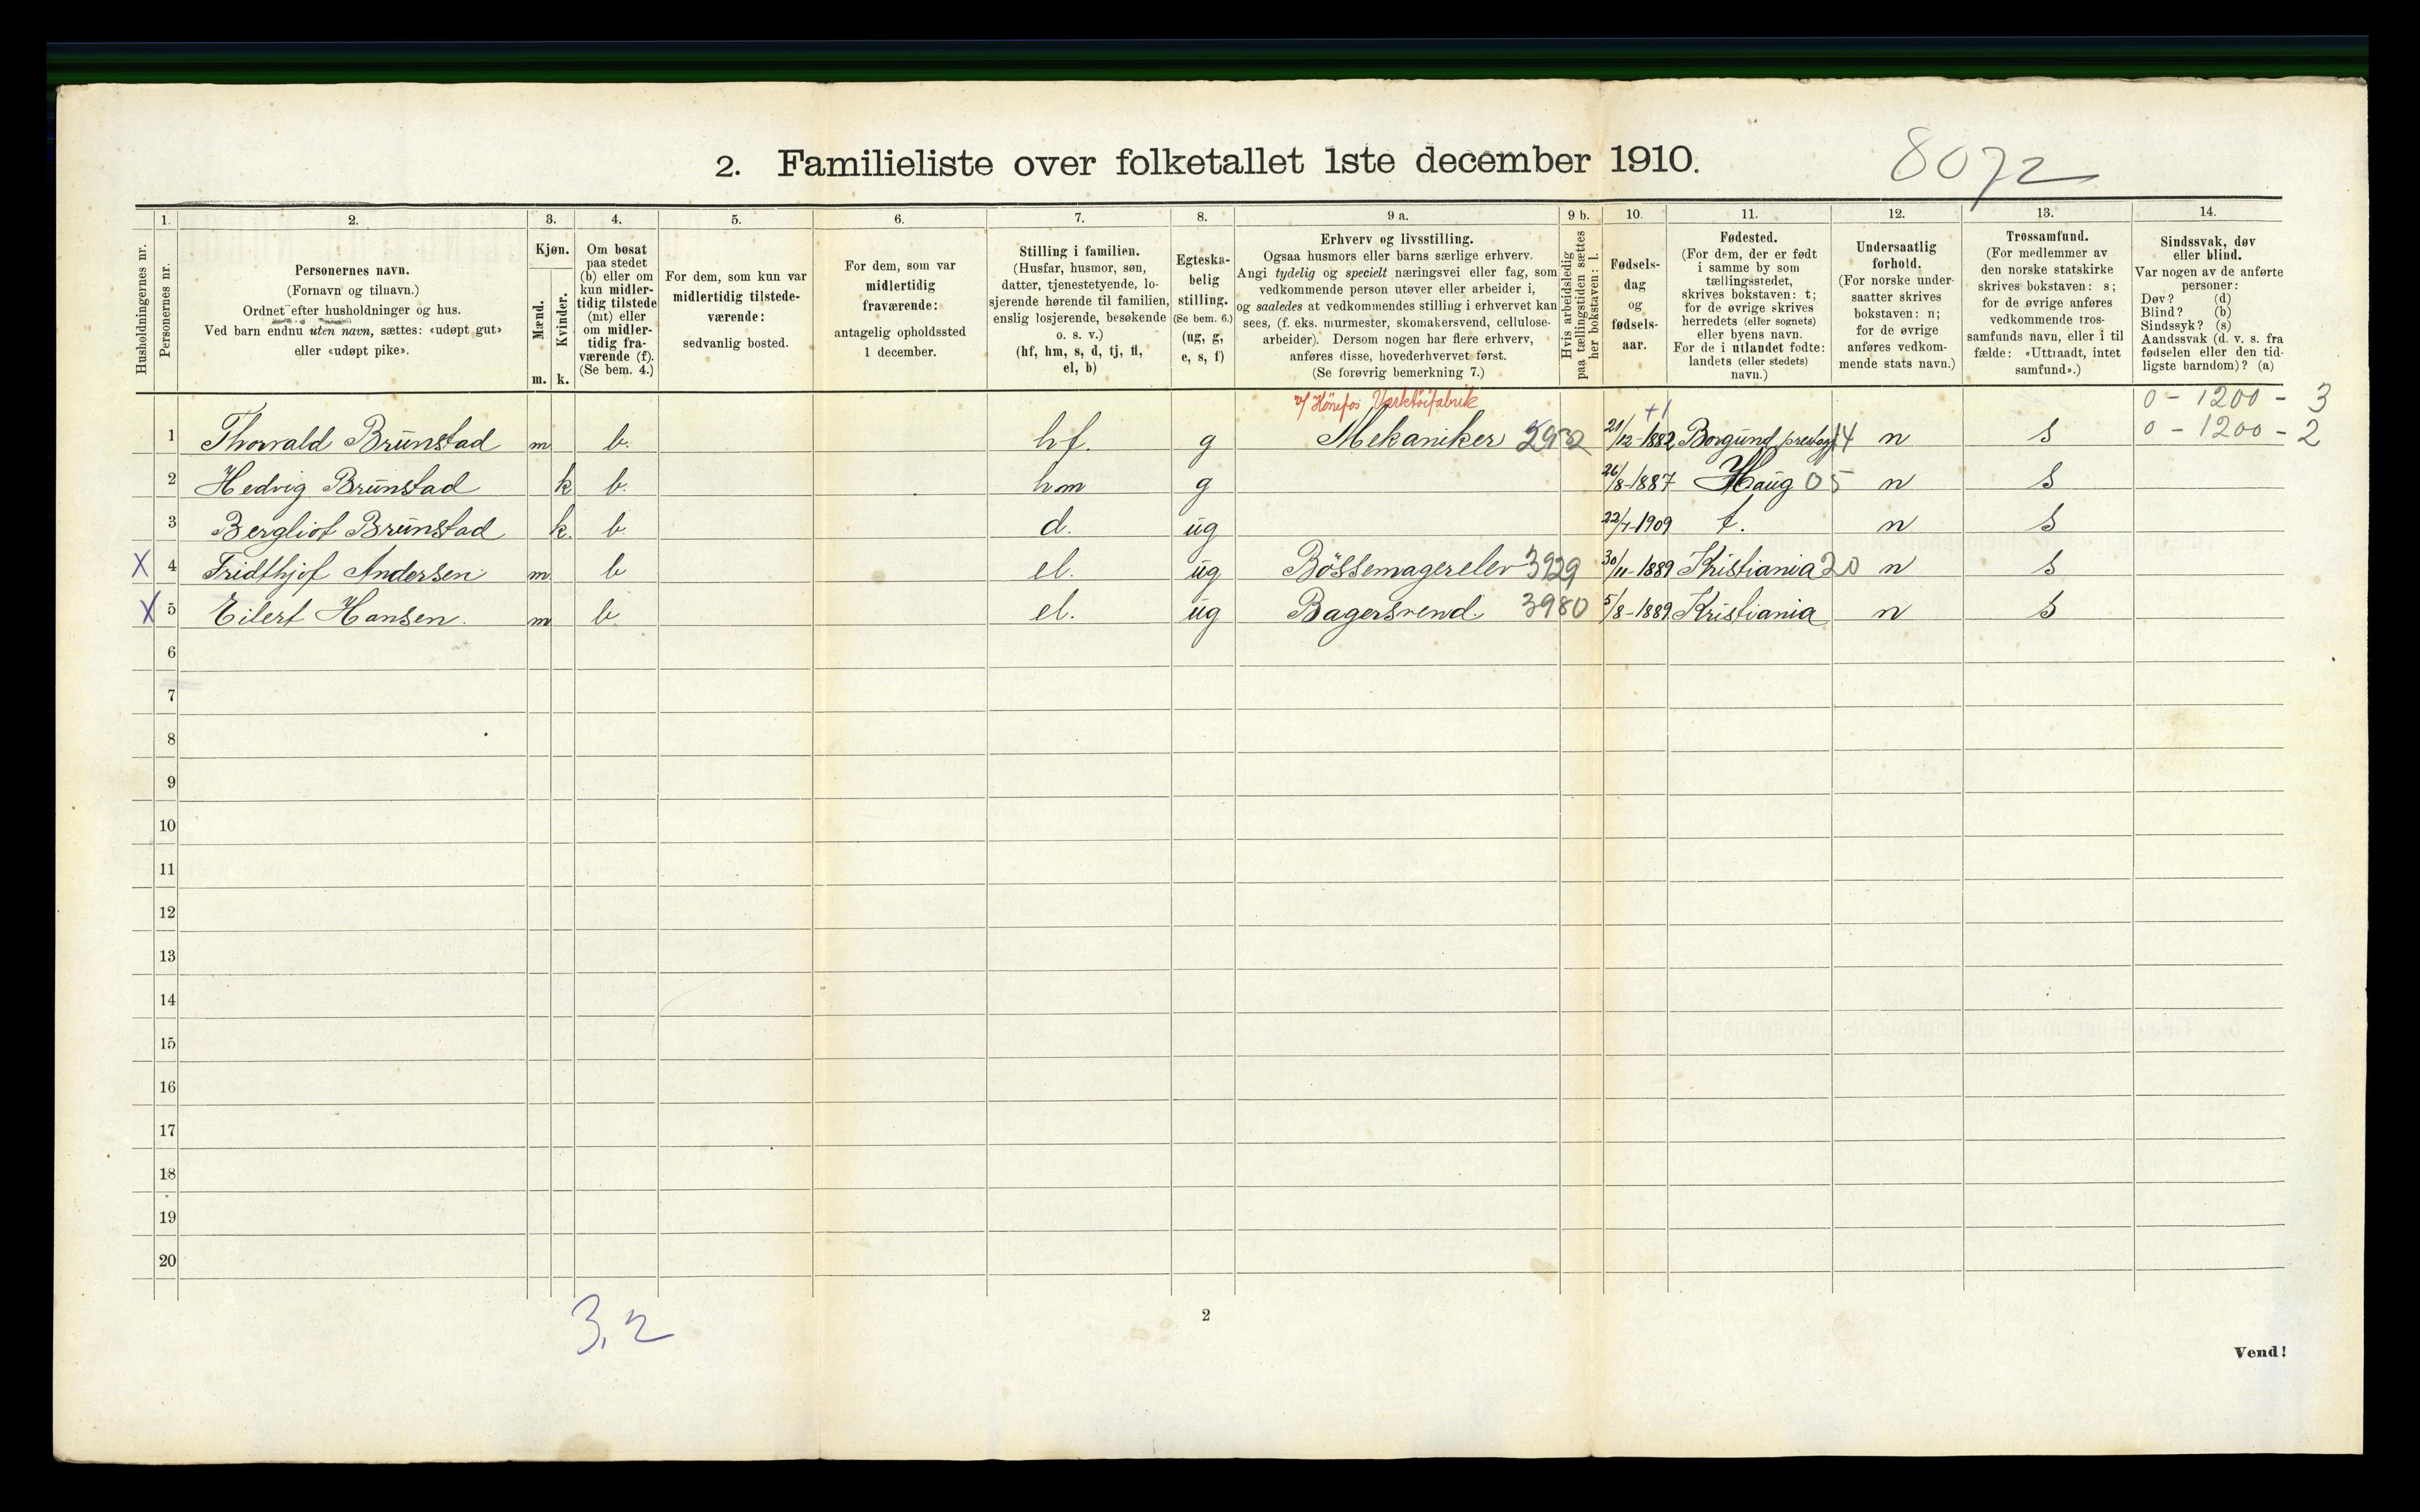 2. Familieliste over folketallet 1ste december 1910.
8072
1. 2. 3. 4. 5. 6. 7. 8. 9 a. 9 b. 10. 11. 12. 13. 14.
Husholdningernes nr.
Personernes nr.
Personernes navn.
(Fornavn og tilnavn.)
Ordnet efter husholdninger og hus.
Ved barn endnu uten navn, sættes: «udøpt gut»
eller «udøpt pike».
Kjøn.
Mænd.
Kvinder.
m. k.
Om bosat
paa stedet
(b) eller om
kun midler-
tidig tilstede
(mt) eller
om midler-
tidig fra-
værende (f).
(Se bem. 4.)
For dem, som kun var
midlertidig tilstede-
værende:
sedvanlig bosted.
For dem, som var
midlertidig
fraværende:
antagelig opholdssted
1 december.
Stilling i familien.
(Husfar, husmor, søn,
datter, tjenestetyende, lo-
sjerende hørende til familien,
enslig losjerende, besøkende
o. s. v.)
(hf, hm, s, d, tj, fl,
el, b)
Egteska-
belig
stilling.
(Se bem. 6.)
(ug, g,
e, s, f)
Erhverv og livsstilling.
Ogsaa husmors eller barns særlige erhverv.
Angi tydelig og specielt næringsvei eller fag, som
vedkommende person utøver eller arbeider i,
og saaledes at vedkommendes stilling i erhvervet kan
sees, (f. eks. murmester, skomakersvend, cellulose-
arbeider). Dersom nogen har flere erhverv,
anføres disse, hovederhvervet først.
(Se forøvrig bemerkning 7.)
Hvis arbeidsledig
paa tællingstiden sættes
her bokstaven: l.
Fødsels-
dag
og
fødsels-
aar.
Fødested.
(For dem, der er født
i samme by som
tællingsstedet,
skrives bokstaven: t;
for de øvrige skrives
herredets (eller sognets)
eller byens navn.
For de i utlandet fødte:
landets (eller stedets)
navn.)
Undersaatlig
forhold.
(For norske under-
saatter skrives
bokstaven: n;
for de øvrige
anføres vedkom-
mende stats navn.)
Trossamfund.
(For medlemmer av
den norske statskirke
skrives bokstaven: s;
for de øvrige anføres
vedkommende tros-
samfunds navn, eller i til
fælde: «Uttraadt, intet
samfund».)
Sindssvak, døv
eller blind.
Var nogen av de anførte
personer:
Døv? (d)
Blind? (b)
Sindssyk? (s)
Aandssvak (d. v. s. fra
fødselen eller den tid-
ligste barndom)? (a)
v/ Hönefos Værktöifabrik +1 0 - 1200 - 3
1 Thorvald Brünstad m b. hf. g Mekaniker 2932 21/12-1882 Borgünd prestegj. 14 n s 0 - 1200 - 2
2 Hedvig Brünstad k b. hm g 26/8-1887 Haüg 05 n s
3 Bergliot Brünstad k. b. d. üg 22/7-1909 t. n s
X 4 Fridthjof Andersen m b el. üg Bössemagerelev 3929 30/11-1889 Kristiania 20 n s
X 5 Eilert Hansen. m b el. üg Bagersvend. 3980 5/8-1889 Kristiania n s
6
7
8
9
10
11
12
13
14
15
16
17
18
19
20
3.2
2
Vend!